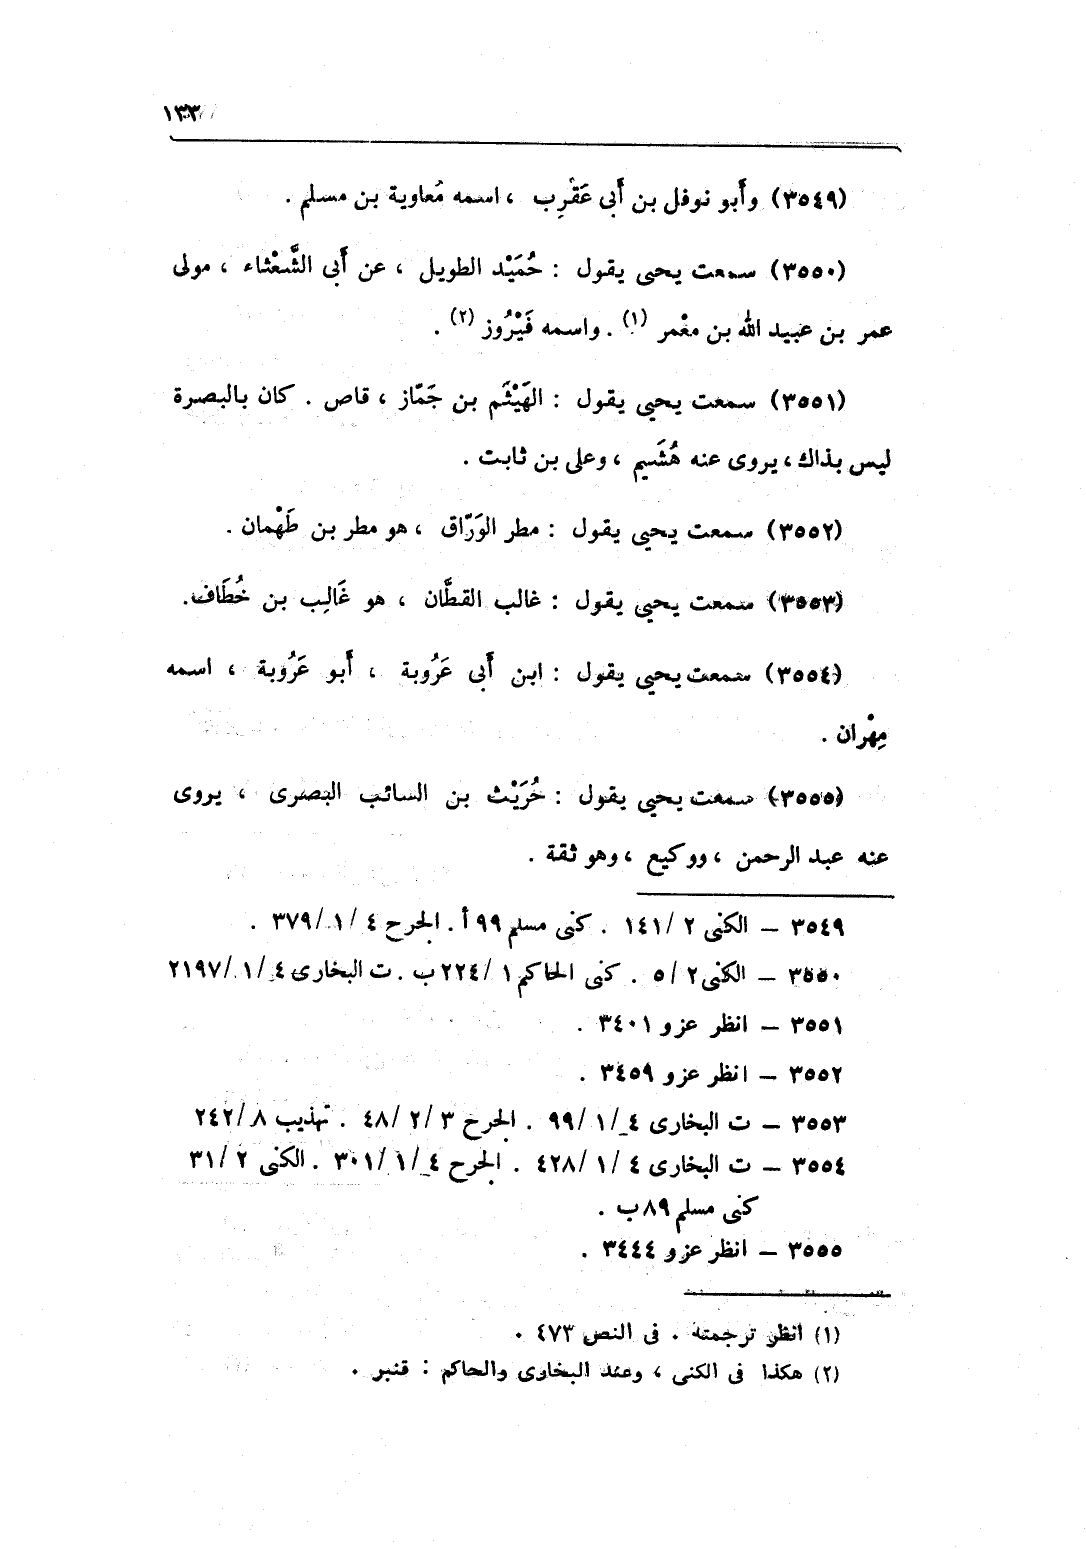 ١٣٣
(٣٥٤٩) وأَبو نوفل بن أَبى عَقْرِب ، اسمه مُعاوية بن مسلم .
(٣٥٥٠) سمعت يحيى يقول : حُمَيْد الطويل ، عن أَبى الشَّعْثاء ، مولى
عمر بن عبيد الله بن معْمر (١) . واسمه فَيْرُوز (٢) .
(٣٥٥١) سمعت يحيى يقول : الهَيْثَم بن جَمّاز ، قاص . كان بالبصرة
ليس بذاك ، يروى عنه هُشَيم ، وعلى بن ثابت .
(٣٥٥٢) سمعت يحيى يقول : مطر الوَرّاق ، هو مطر بن طَهْمان .
(٣٥٥٣) سمعت يحيى يقول : غالب القطَّان ، هو غَالِب بن خُطَاف.
(٣٥٥٤) سمعت يحيى يقول : ابن أَبى عَرُوبة ، أَبو عَرُوبة ، اسمه
مِهْران .
(٣٥٥٥) سمعت يحيى يقول : حُرَيْث بن السائب البصرى ، يروى
عنه عبد الرحمن ، ووكيع ، وهو ثقة .
٣٥٤٩ – الكنى ٢ /١٤١ . كنى مسلم ٩٩ أ . الجرح ٤ /١ /٣٧٩ .
٣٥٥٠ – الكنى ٢ /٥ . كنى الحاكم ١ /٢٢٤ ب . ت البخارى ٤ /١ /٢١٩٧
٣٥٥١ – انظر عزو ٣٤٠١ .
٣٥٥٢ – انظر عزو ٣٤٥٩ .
٣٥٥٣ – ت البخارى ٤ /١ /٩٩ . الجرح ٣ /٢ /٤٨ . تهذيب ٨ /٢٤٢
٣٥٥٤ – ت البخارى ٤ /١ /٤٢٨ . الجرح ٤ /١ /٣٠١ . الكنى ٢ /٣١
كنى مسلم ٨٩ ب .
٣٥٥٥ – انظر عزو ٣٤٤٤ .
(١) انظر ترجمته . فى النص ٤٧٣ .
(٢) هكذا فى الكنى ، وعند البخارى والحاكم : قنبر .